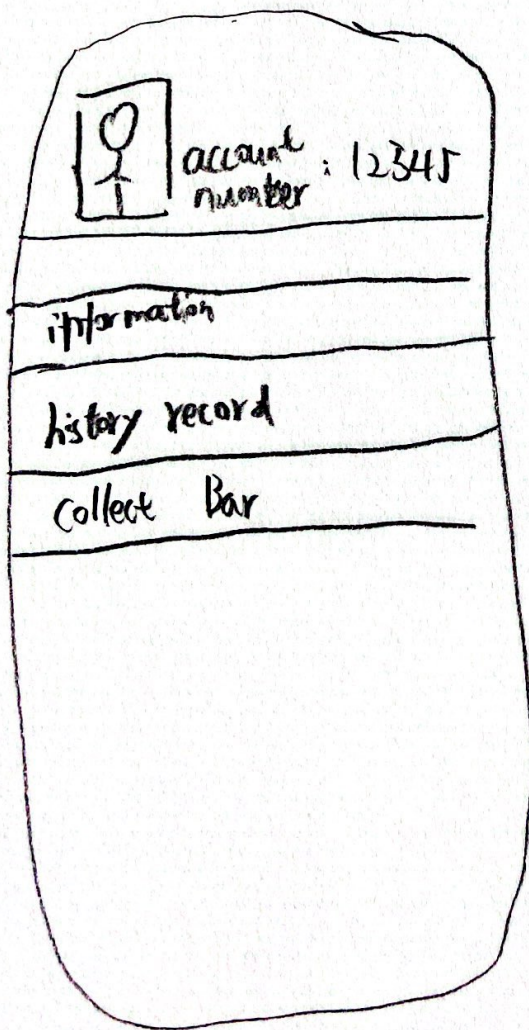 account number : 12345
information
history record
Collect Bar